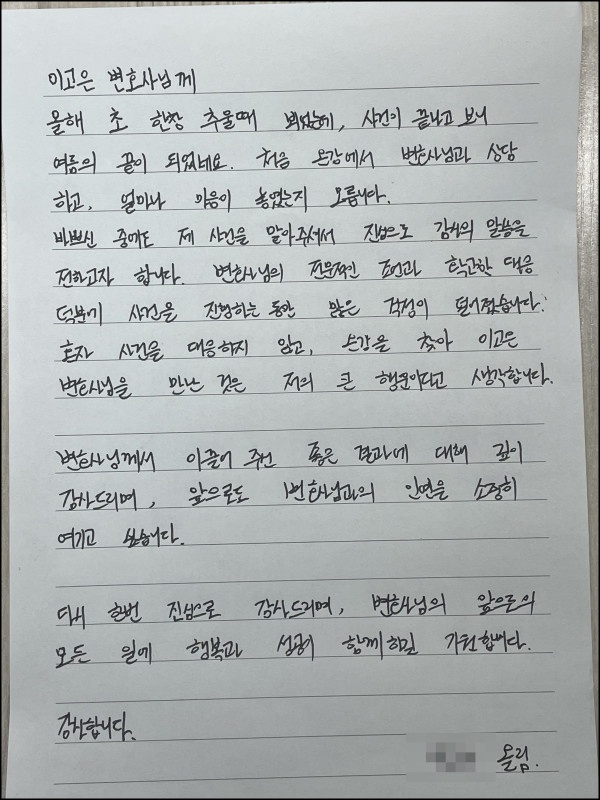 이고은 변호사님께
올해 초 한창 추울때 뵈었는데, 사건이 끝나고 보니
여름의 끝이 되었네요. 처음 온강에서 변호사님과 상담
하고, 얼마나 마음이 놓였는지 모릅니다.
바쁘신 중에도 제 사건을 맡아주셔서 진심으로 감사의 말씀을
전하고자 합니다. 변호사님의 전문적인 조언과 확고한 대응
덕분에 사건을 진행하는 동안 많은 걱정이 덜어졌습니다.
혼자 사건을 대응하지 않고, 온강을 찾아 이고은
변호사님을 만난 것은 저의 큰 행운이라고 생각합니다.
변호사님께서 이끌어 주신 좋은 결과에 대해 깊이
감사드리며, 앞으로도 변호사님과의 인연을 소중히
여기고 싶습니다.
다시 한번 진심으로 감사드리며, 변호사님의 앞으로의
모든 일에 행복과 성공이 함께하길 기원합니다.
감사합니다.
올림.